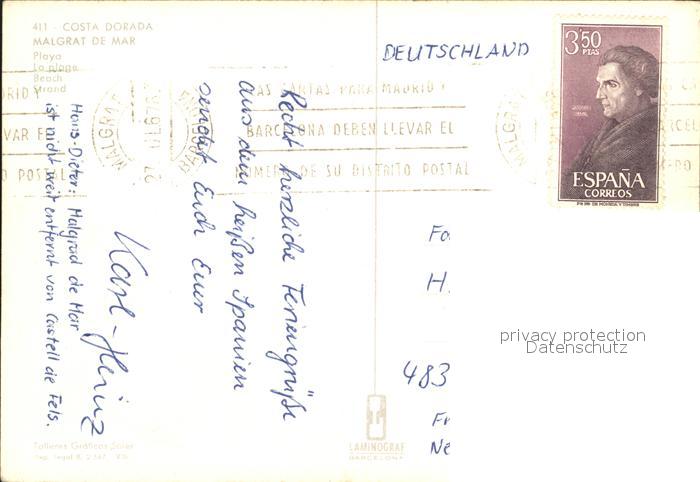 411 - COSTA DORADA
MALGRAT DE MAR
Playa
La plage
Beach
Strand
DEUTSCHLAND
LAS CARTAS PARA MADRID Y
BARCELONA DEBEN LLEVAR EL
NUMERO DE SU DISTRITO POSTAL
MALGRAT
BARCELONA
3'50
PTAS
ESPAÑA
CORREOS
Recht herzliche Feriengrüße
aus dem heißen Spanien
sendet Euch Euer
Karl-Heinz
Hans-Dieter: Malgrad de Mar
ist nicht weit entfernt von Castell de Fels.
Fa
H.
483
Fr
Ne
privacy protection
Datenschutz
LAMINOGRAF
BARCELONA
Talleres Gráficos Soler